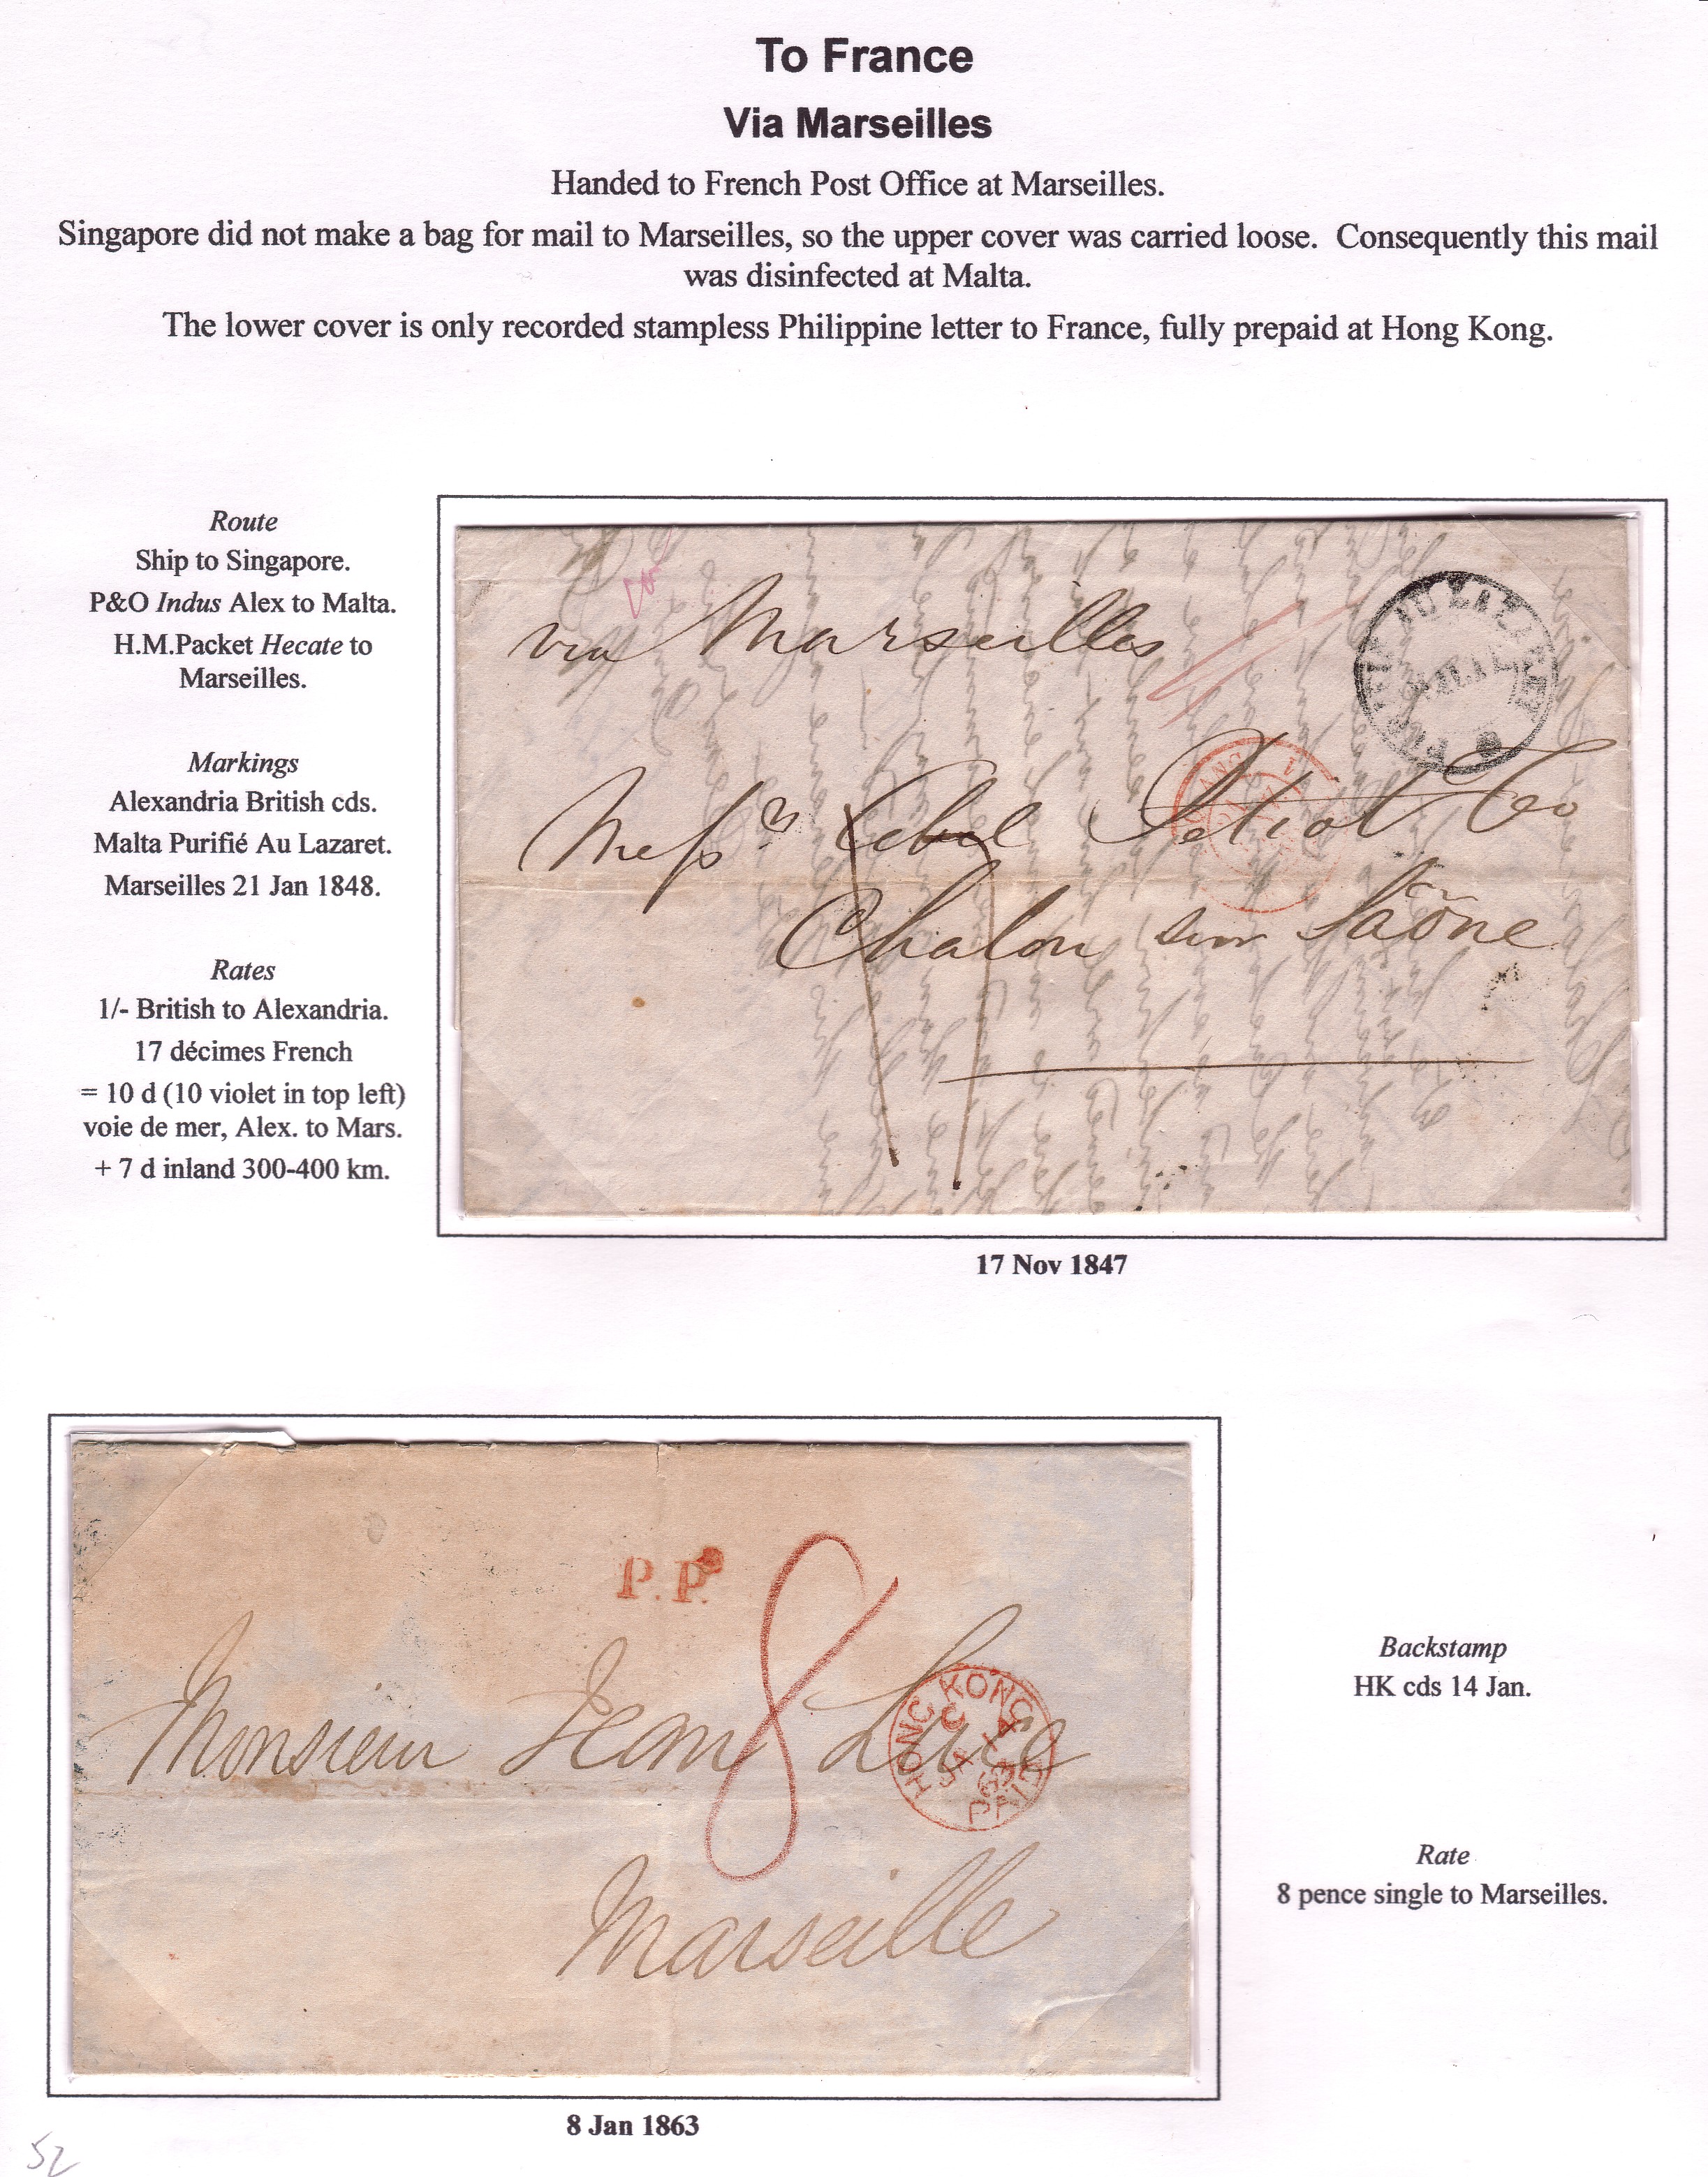 To France
Via Marseilles
Handed to French Post Office at Marseilles.
Singapore did not make a bag for mail to Marseilles, so the upper cover was carried loose.  Consequently this mail
was disinfected at Malta.
The lower cover is only recorded stampless Philippine letter to France, fully prepaid at Hong Kong.
Route
Ship to Singapore.
P&O Indus Alex to Malta.
H.M.Packet Hecate to
Marseilles.
Markings
Alexandria British cds.
Malta Purifié Au Lazaret.
Marseilles 21 Jan 1848.
Rates
1/- British to Alexandria.
17 décimes French
= 10 d (10 violet in top left)
voie de mer, Alex. to Mars.
+ 7 d inland 300-400 km.
via Marseilles
AU LAZARET
Messrs Petiot & Co
Chalon sur Saône
17
17 Nov 1847
P.P.
8
Monsieur Jean Luce
HONG KONG
C
JA 14
63
PAID
Marseille
Backstamp
HK cds 14 Jan.
Rate
8 pence single to Marseilles.
8 Jan 1863
52